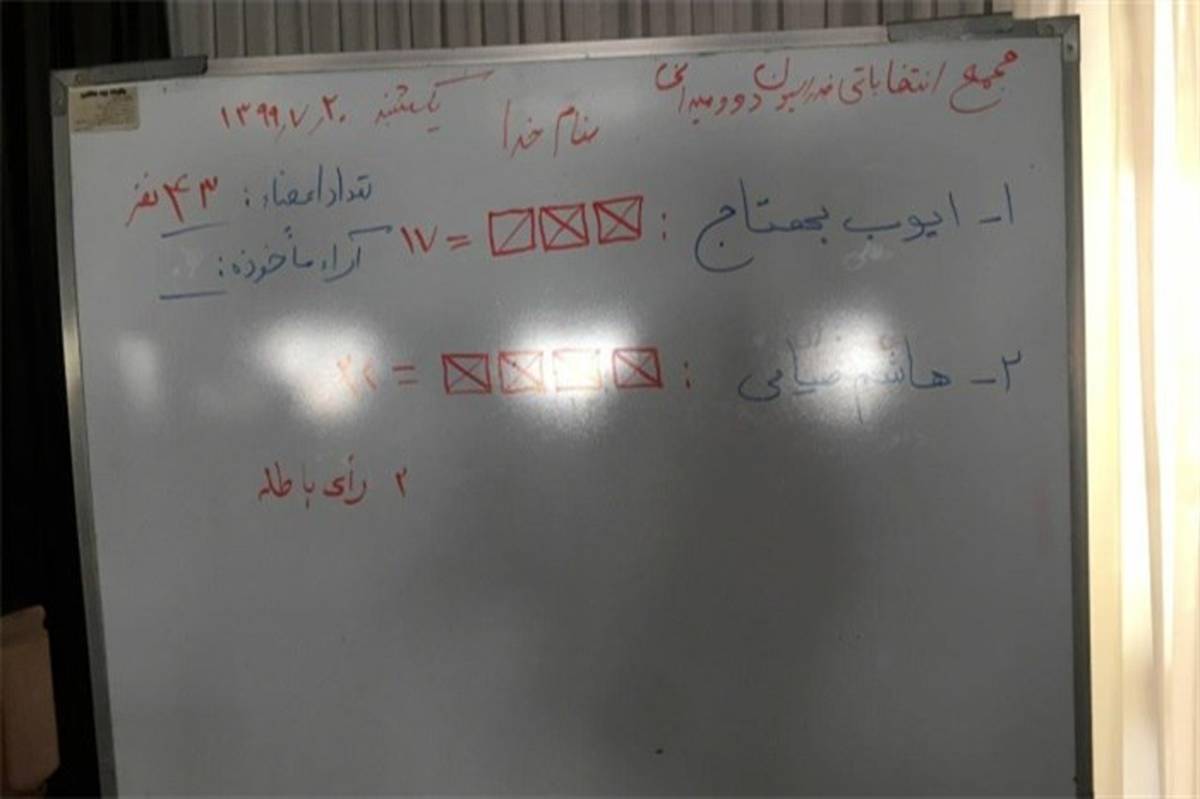 مجمع انتخاباتی فدراسیون دوومیدانی
بنام خدا
یکشنبه ۱۳۹۹٫۷٫۲۰
تعداد اعضاء: ۴۳ نفر
آراء مأخوذه:
۱- ایوب بهتاج : = ۱۷
۲- هاشم صیامی : =
۲ رأی باطله